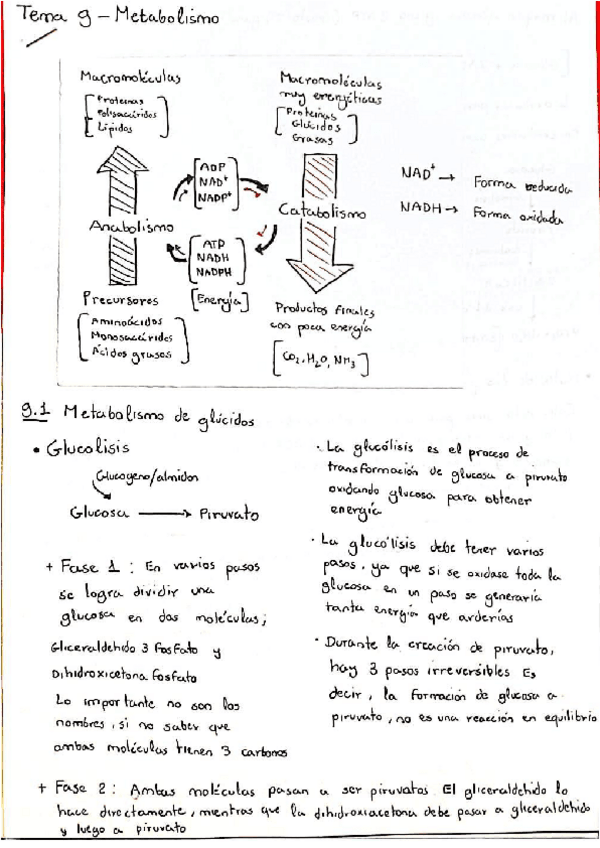 Tema 9 - Metabolismo
Macromoléculas
[Proteinas
Polisacáridos
Lípidos]
Macromoléculas
muy energéticas
[Proteinas
Glúcidos
Grasas]
ADP
NAD+
NADP+
NAD+ → Forma reducida
NADH → Forma oxidada
Anabolismo
Catabolismo
ATP
NADH
NADPH
[Energía]
Precursores
[Aminoácidos
Monosacáridos
Ácidos grasos]
Productos finales
con poca energía
[CO2, H2O, NH3]
9.1 Metabolismo de glúcidos
• Glucolisis
Glucogeno/almidon
Glucosa → Piruvato
+ Fase 1: En varios pasos
se logra dividir una
glucosa en dos moléculas;
Gliceraldehido 3 Fosfato y
Dihidroxicetona Fosfato
Lo importante no son los
nombres, si no saber que
ambas moléculas tienen 3 carbonos
· La glucólisis es el proceso de
transformación de glucosa a piruvato
oxidando glucosa para obtener
energía
· La glucólisis debe tener varios
pasos, ya que si se oxidase toda la
glucosa en un paso se generaría
tanta energía que arderías
· Durante la creación de piruvato,
hay 3 pasos irreversibles Es
decir, la formación de glucosa a
piruvato, no es una reacción en equilibrio
+ Fase 2: Ambas moléculas pasan a ser piruvatos. El gliceraldehido lo
hace directamente, mientras que la dihidroxiacetona debe pasar a gliceraldehido
y luego a piruvato